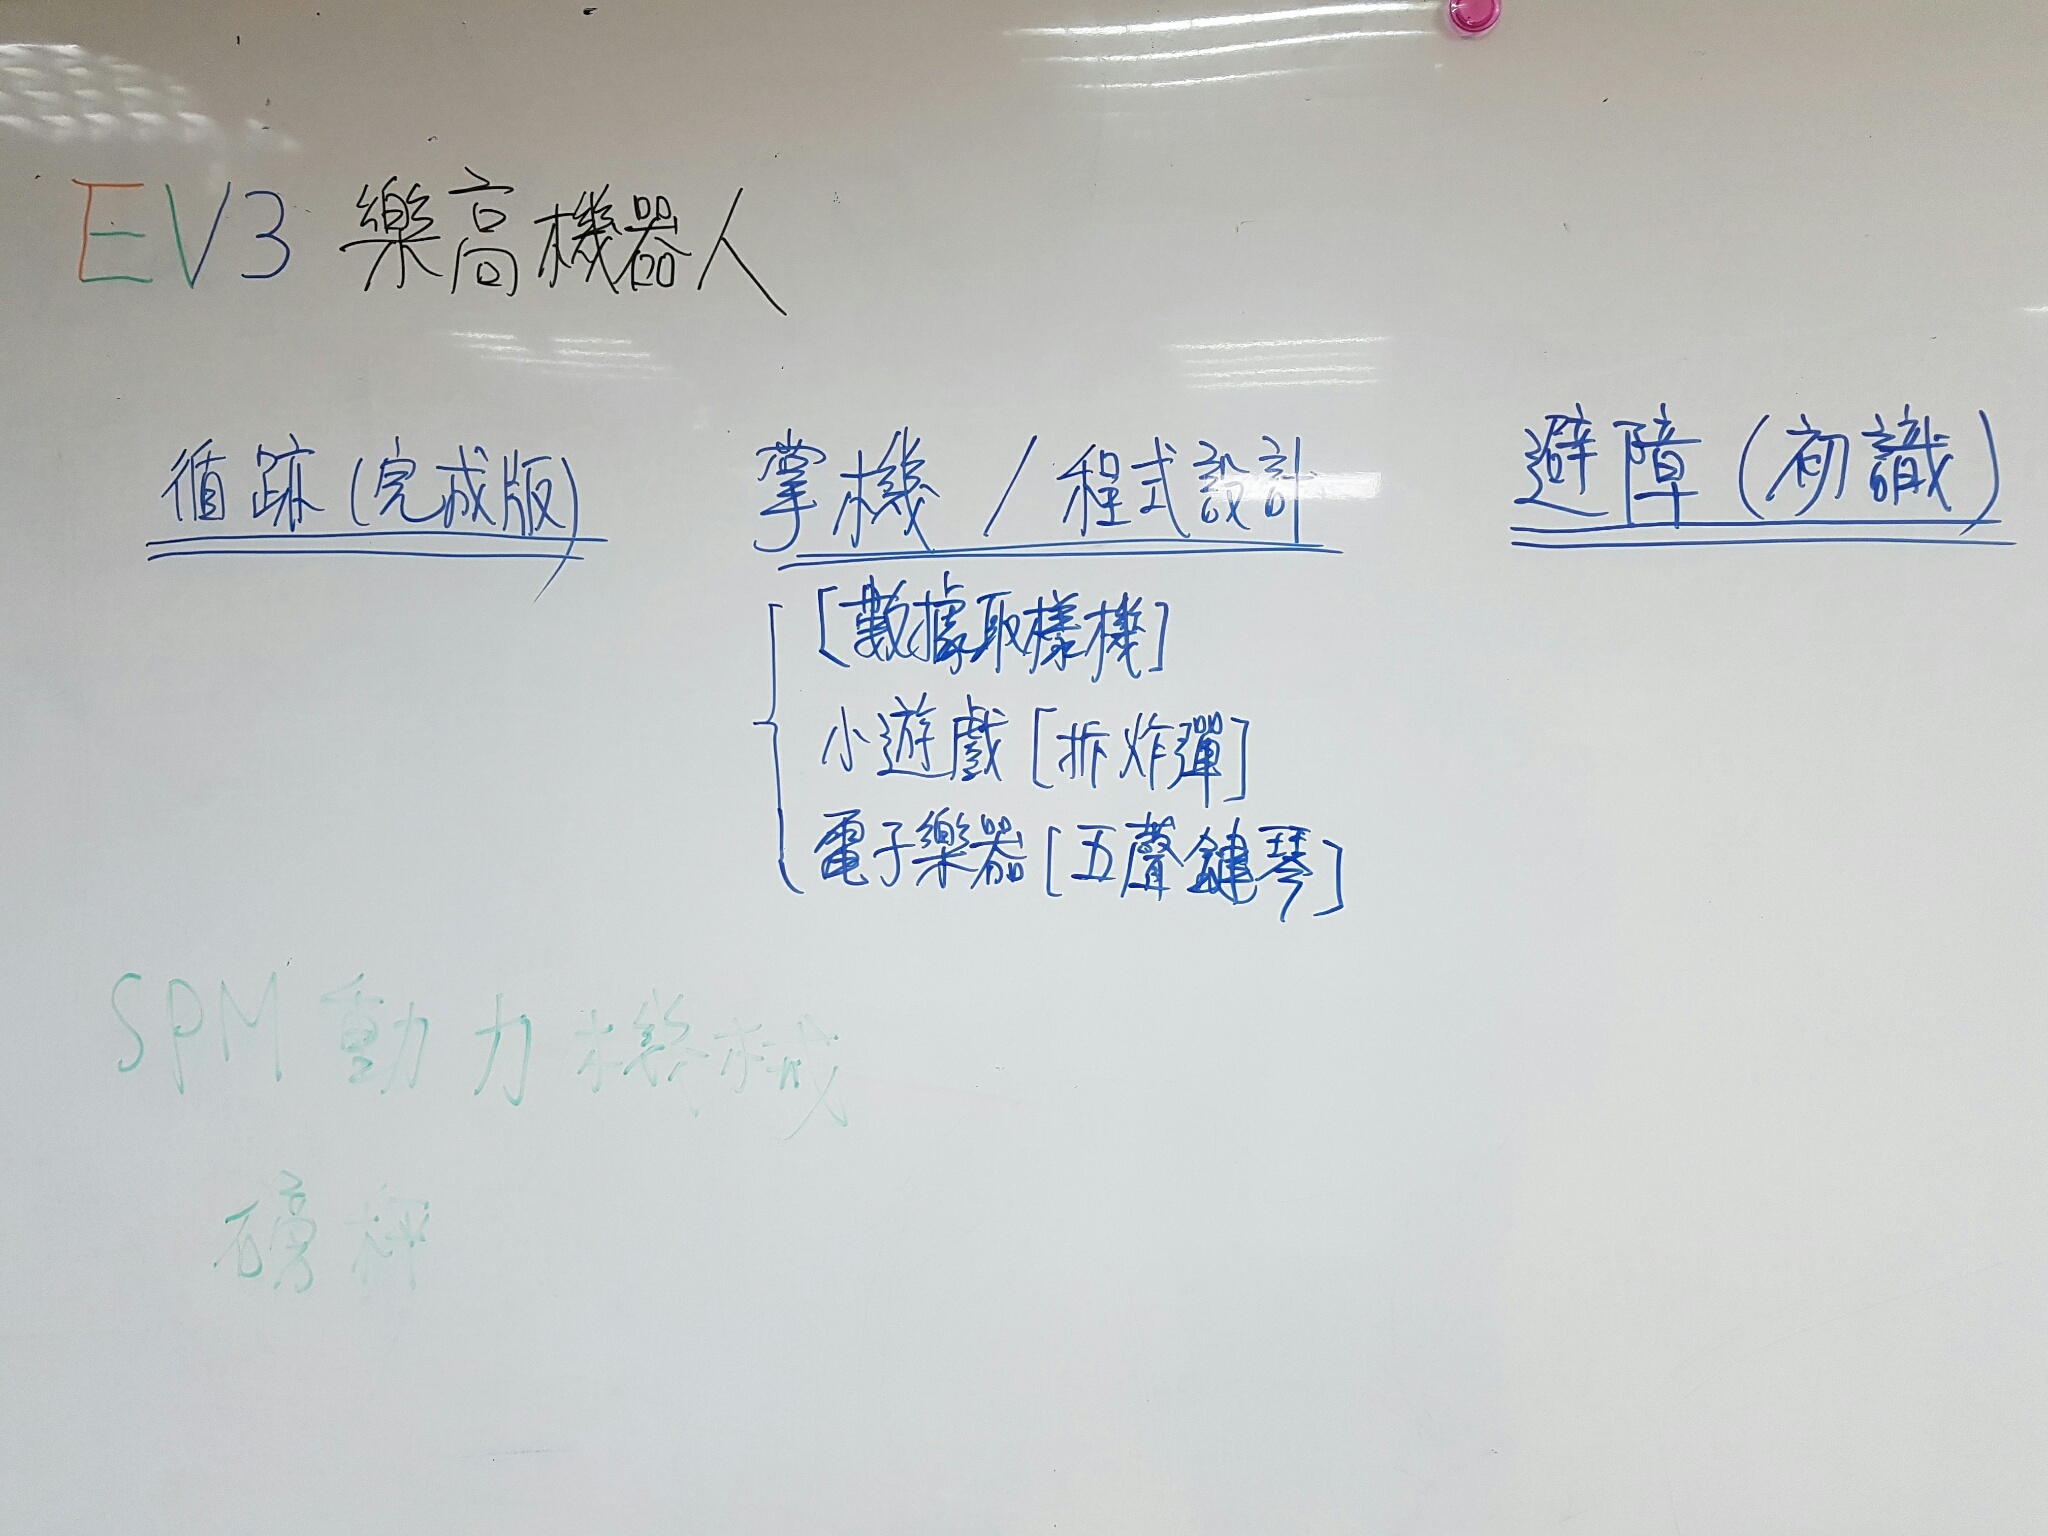 EV3 樂高機器人
循跡(完成版)
掌機 / 程式設計
[數據取樣機]
小遊戲[拆炸彈]
電子樂器[五聲鍵琴]
避障(初識)
SPM動力機械
磅秤